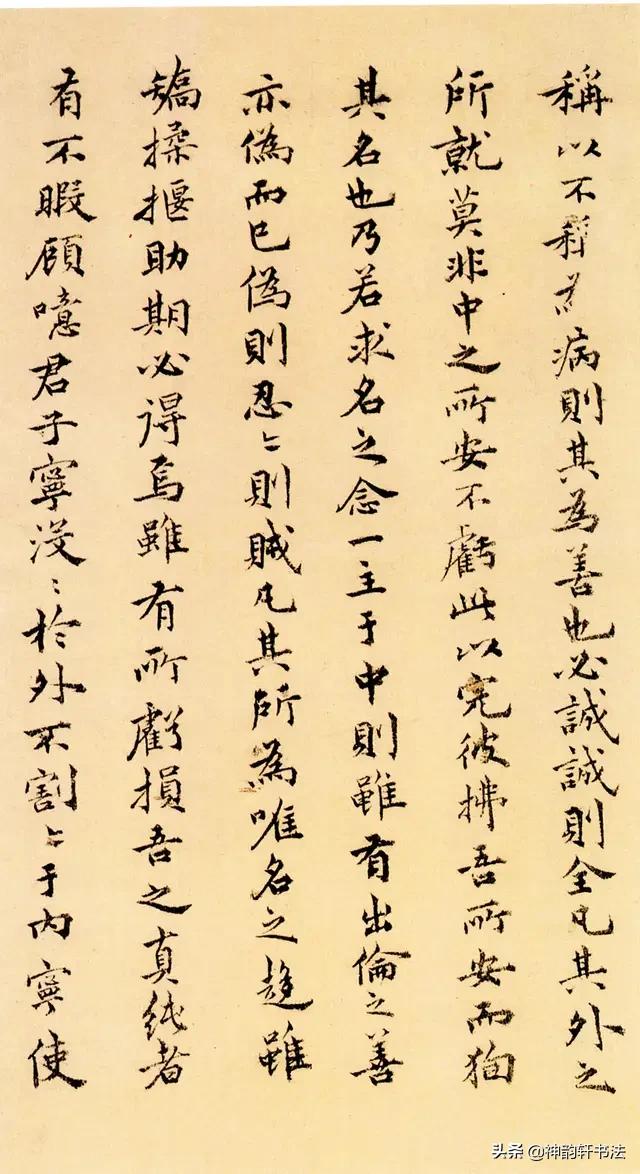 稱以不稱為病則其為善也必誠誠則全凡其外之
所就莫非中之所安不虧此以完彼拂吾所安而狥
其名也乃若求名之念一主于中則雖有出倫之善
亦偽而已偽則忍〻則賊凡其所為唯名之趍雖
矯揉揠助期必得焉雖有所虧損吾之真純者
有不暇顧噫君子寧没〻於外不割〻于内寧使
头条 @神韵轩书法